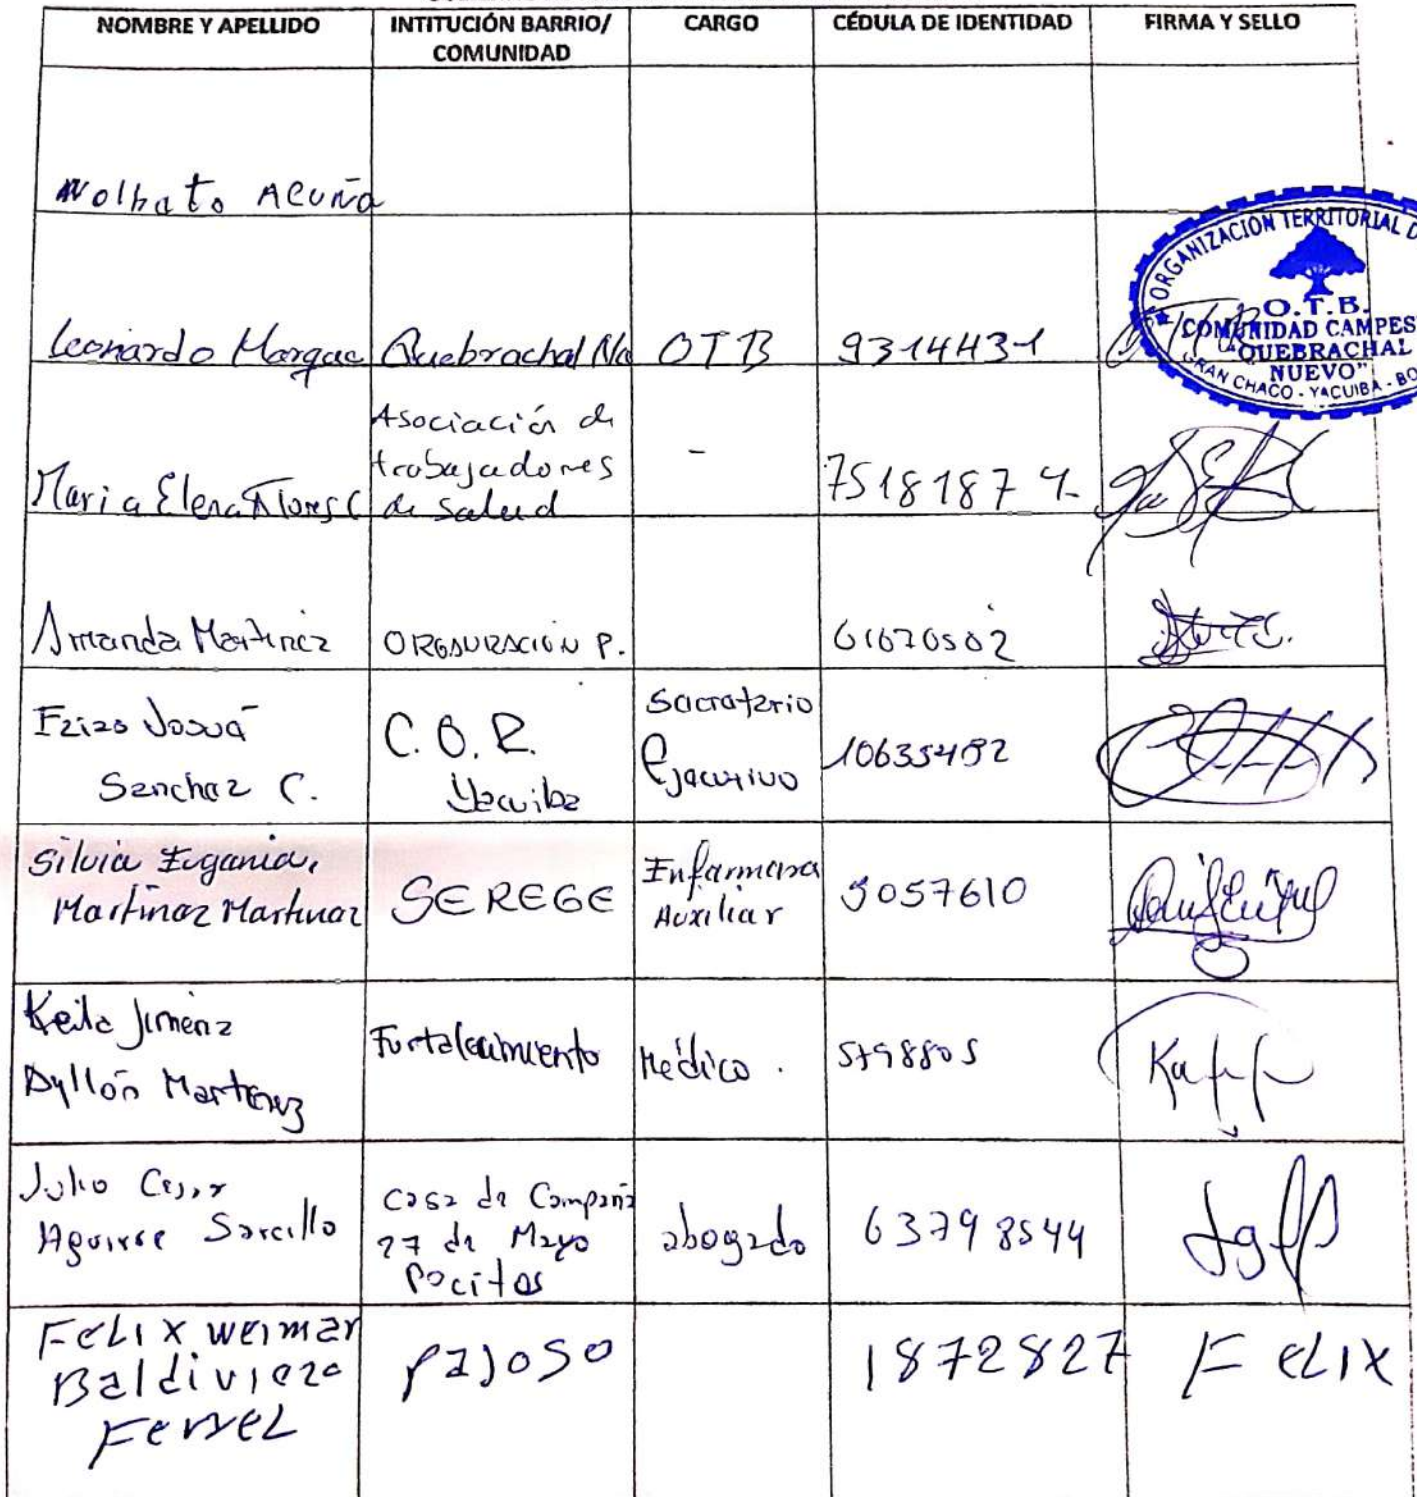 NOMBRE Y APELLIDO INTITUCIÓN BARRIO/ COMUNIDAD CARGO CÉDULA DE IDENTIDAD FIRMA Y SELLO
Acuña
Leonardo Quebrachal OTB 9314431
ORGANIZACION TERRITORIAL D
O.T.B.
COMUNIDAD CAMPES
"QUEBRACHAL
NUEVO"
RAN CHACO - YACUIBA - BO
Maria Elena Flores C
Asociación de
trabajadores
de salud
-
7518187
Amanda Martinez P.
Josué
Sanchez C.
C. O. R.
Yacuiba
Secretario
Ejecutivo
Silvia Eugenia
Martinez Martinez
SEREGE
Enfermera
Auxiliar
5057610
Keila Jimena
Ayllón Martinez
Fortalecimiento
Médico.
5798805
Julio Cesar
Aguirre Sarcillo
Casa de Campaña
27 de Mayo
Pocitos
abogado
63798544
FELIX weimar
Baldiviezo
Ferrel
Pajoso
1872827
FELIX